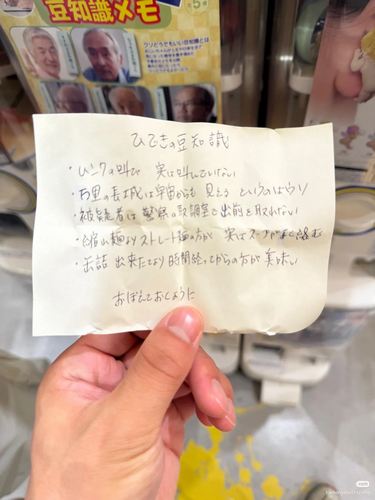 豆知識メモ
第5
クソどうでもいい豆知識とは
ひできの豆知識
・ムンクの叫び 実は叫んでいない
・万里の長城は宇宙からも見えるというのはウソ
・被疑者は警察の取調室で出前を取れない
・縮れ麺よりストレート麺の方が実はスープがよく絡む
・缶詰 出来たてより時間経ってからの方が美味い
おぼえておくように